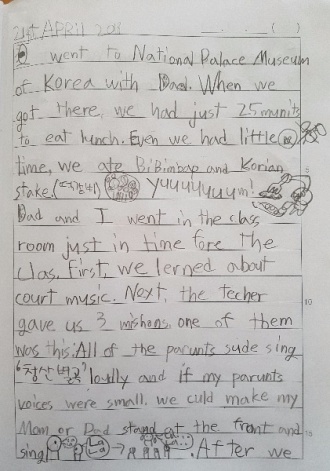 21st APRIL
I went to National Palace Museum
of Korea with Dad. When we
got there, we had just 25 munits
to eat lunch. Even we had little
time, we ate BiBimbap and Korian
stake. (떡갈비) Yuuuuuuum!
5
Dad and I went in the class
room just in time fore the
clas. First, we lerned about
court music. Next, the techer
10
gave us 3 mishons, one of them
was this: All of the parunts sude sing
"청산별곡" loudly and if my parunts
voices were small, we culd make my
Mom or Dad stand at the front and
15
sing La La La . After we